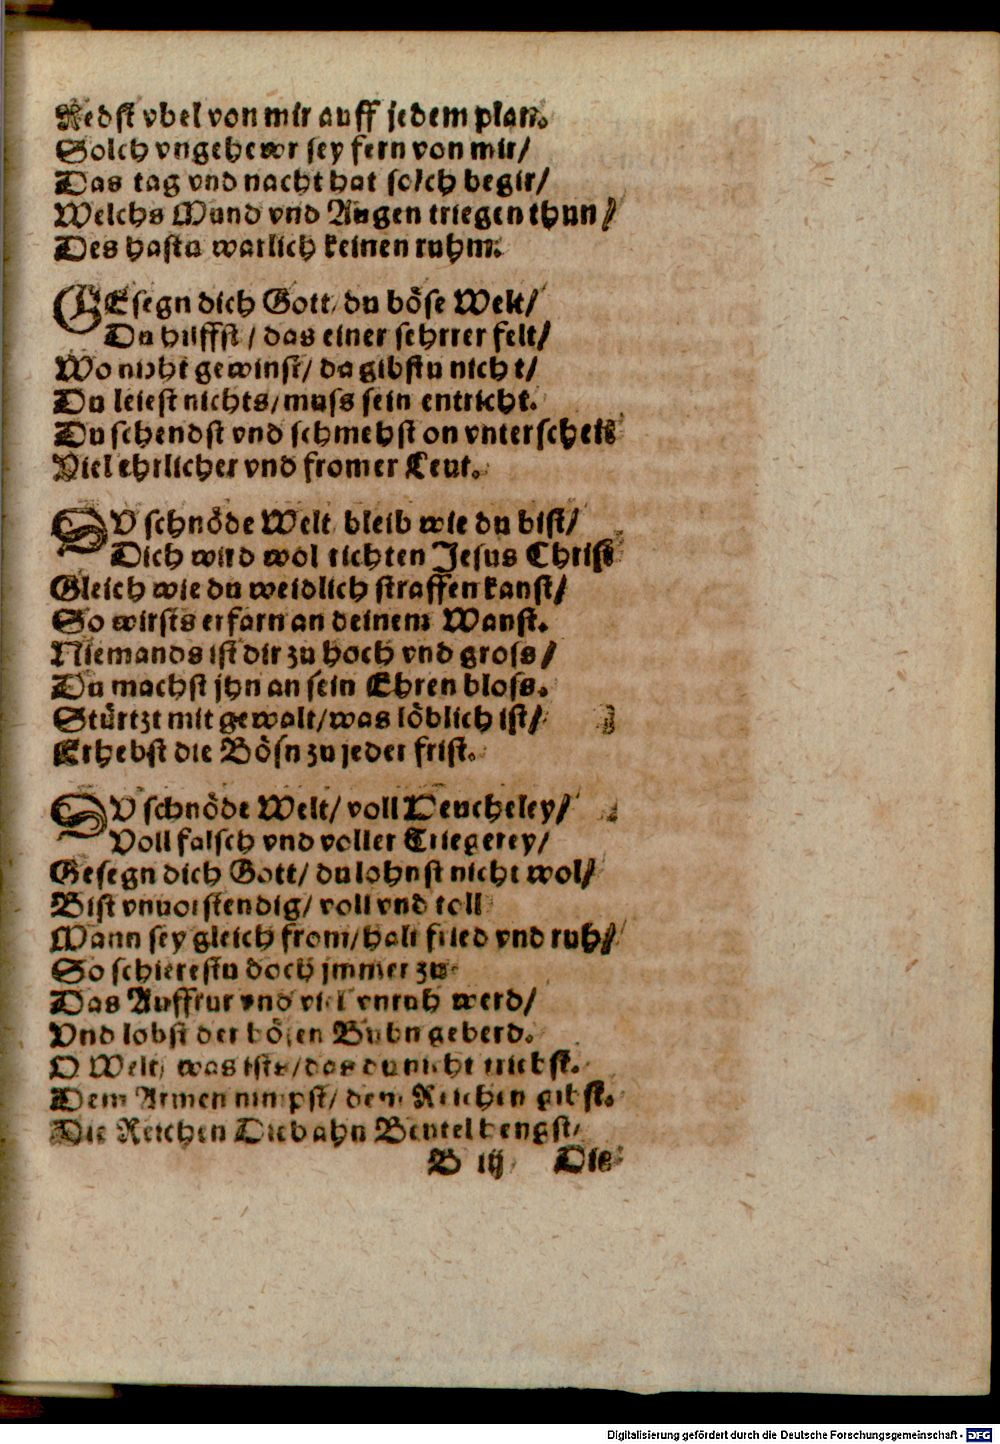 Redst vbel von mir auff jedem plan.
Solch vngehewr sey fern von mir/
Das tag vnd nacht hat solch begir/
Welchs Mund vnd Augen triegen thun/
Des hastu warlich keinen ruhm.
GEsegn dich Gott/ du böse Welt/
Du hilffst/ das einer sehrrer felt/
Wo nicht gewinst/ da gibstu nicht/
Du leiest nichts/ muss sein entricht.
Du schendst vnd schmehst on vnterscheit
Viel ehrlicher vnd fromer Leut.
DV schnöde Welt bleib wie du bist/
Dich wird wol richten Jesus Christ
Gleich wie du weidlich straffen kanst/
So wirsts erfarn an deinem Wanst.
Niemands ist dir zu hoch vnd gross/
Du machst jhn an sein Ehren bloss.
Stürtzt mit gewalt/ was löblich ist/
Erhebst die Bösn zu jeder frist.
DV schnöde Welt/ voll Heucheley/
Voll falsch vnd voller Triegerey/
Gesegn dich Gott/ du lohnst nicht wol/
Bist vnuorstendig/ voll vnd toll
Wann sey gleich from/ halt fried vnd ruh/
So schierestu doch jmmer zu
Das Auffrur vnd viel vnruh werd/
Vnd lobst der bösen Bubn geberd.
O Welt/ was ists/ das du nicht triebst.
Dem Armen nimpst/ dem Reichen gibst.
Die Reichen Dieb ahn Beutel hengst/
B iij Die
Digitalisierung gefördert durch die Deutsche Forschungsgemeinschaft - DFG